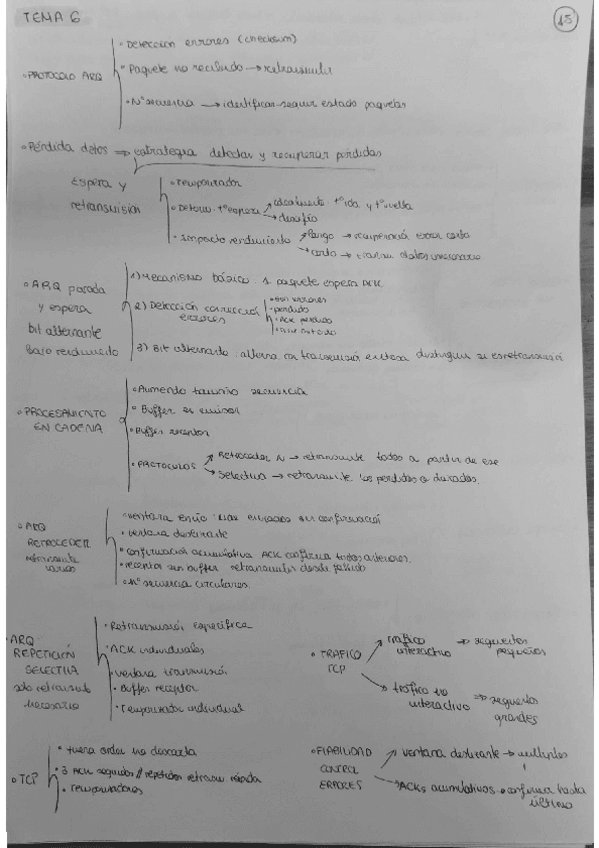 TEMA 6
15
• Detección errores (checksum)
• PROTOCOLO ARQ
• Paquete no recibido → retransmitir
• Nº secuencia → identificar seguir estado paquetes
• Pérdida datos ⇒ estrategia detectar y recuperar perdidas
Espera y retransmisión
• Temporizador
• Determ. tº espera
idealmente tº ida y tº vuelta
desafío
• Impacto rendimiento
largo → recuperación error
corto →
datos innecesario
• ARQ parada y espera
bit alternante
Bajo rendimiento
1) Mecanismo básico: 1 paquete espera ACK
2) Detección corrección errores
• sin errores
• perdido
• ACK perdido
3) Bit alternante: alterna con transmisión exitosa distinguir si es retransmisión
• PROCESAMIENTO EN CADENA
• Aumento tamaño secuencia
• Buffer en emisor
• Buffer receptor
• PROTOCOLOS
Retroceder N → retransmite todos a partir de ese
Selectiva → retransmite los perdidos o dañados.
• ARQ RETROCEDER
retransmite varios
• ventana envío: enviados sin confirmación
• ventana deslizante
• confirmación acumulativa ACK confirma todos anteriores.
• receptor sin buffer retransmitir desde fallido
• Nº secuencia circulares.
• ARQ REPETICIÓN SELECTIVA
solo retransmite necesario
• Retransmisión específica
• ACK individuales
• ventana transmisión
• Buffer receptor
• Temporizador individual
• TRAFICO TCP
trafico interactivo ⇒ segmentos pequeños
trafico no interactivo ⇒ segmentos grandes
• TCP
• fuera orden no descarta
• 3 ACK seguidos // repetidos retrans. rápida
• temporizadores
• FIABILIDAD CONTROL ERRORES
ventana deslizante → multiples
ACKs acumulativos → confirma hasta último